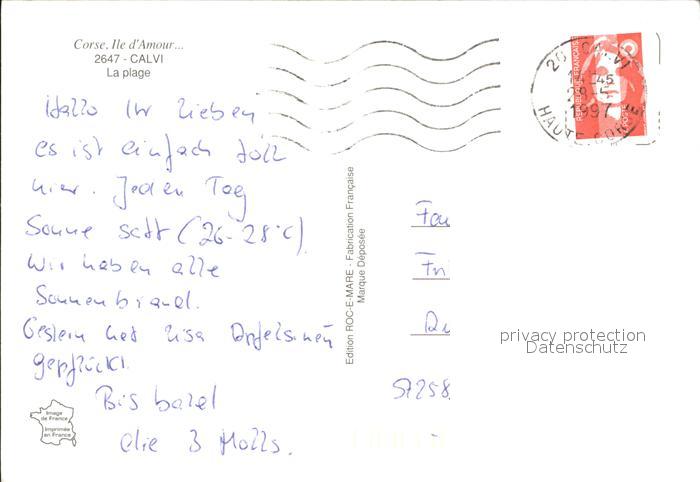 Corse, Ile d'Amour...
2647 - CALVI
La plage
Hallo Ihr Lieben
es ist einfach toll
hier. Jeden Tag
Sonne satt (26-28°C).
Wir haben alle
Sonnenbrand.
Gestern hat Lisa Apfelsinen
gepflückt.
Bis bald
die 3 Molls.
Image
de France
Imprimée
en France
Edition ROC-E-MARE - Fabrication Française
Marque Déposée
CALVI
14-45
1997
HAUTE-CORSE
REPUBLIQUE FRANÇAISE
Fa
57258
privacy protection
Datenschutz